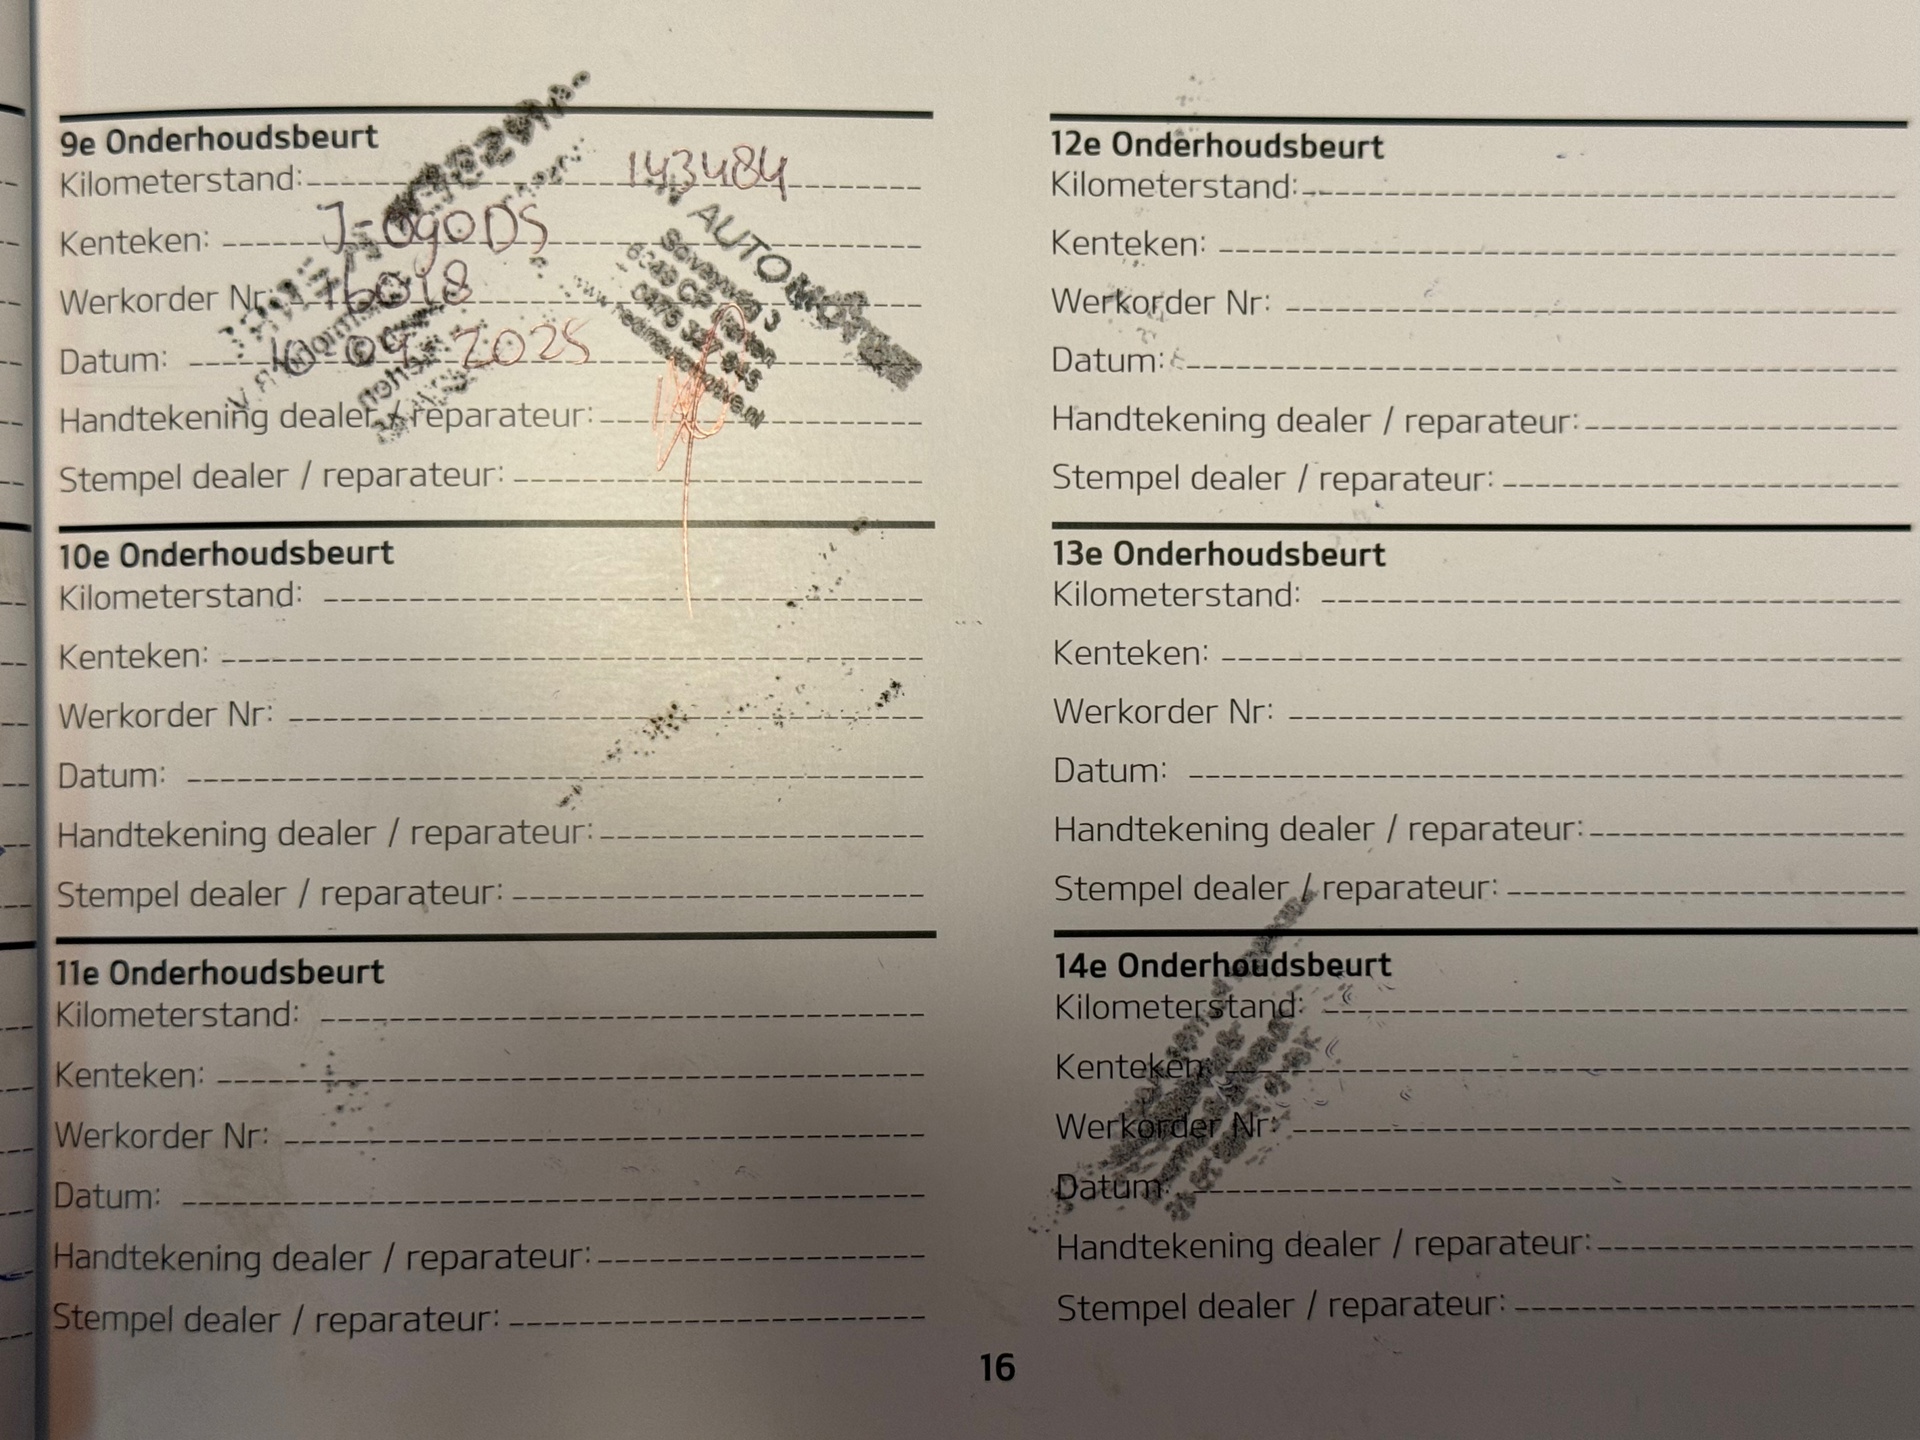 9e Onderhoudsbeurt
Kilometerstand: 143484
Kenteken: J-090DS
Werkorder Nr: 76018
Datum: 10 04 2025
Handtekening dealer / reparateur:
Stempel dealer / reparateur:
AUTOMOTIVE
10e Onderhoudsbeurt
Kilometerstand:
Kenteken:
Werkorder Nr:
Datum:
Handtekening dealer / reparateur:
Stempel dealer / reparateur:
11e Onderhoudsbeurt
Kilometerstand:
Kenteken:
Werkorder Nr:
Datum:
Handtekening dealer / reparateur:
Stempel dealer / reparateur:
12e Onderhoudsbeurt
Kilometerstand:
Kenteken:
Werkorder Nr:
Datum:
Handtekening dealer / reparateur:
Stempel dealer / reparateur:
13e Onderhoudsbeurt
Kilometerstand:
Kenteken:
Werkorder Nr:
Datum:
Handtekening dealer / reparateur:
Stempel dealer / reparateur:
14e Onderhoudsbeurt
Kilometerstand:
Kenteken:
Werkorder Nr:
Datum:
Handtekening dealer / reparateur:
Stempel dealer / reparateur:
16